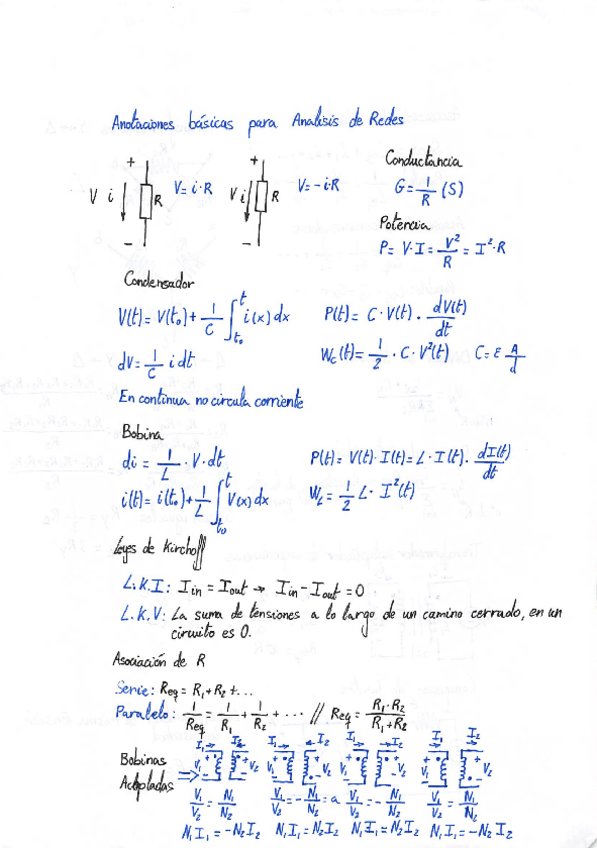 Anotaciones básicas para Analisis de Redes
+ + Conductancia
V i R V= i·R V i R V= -i·R G= 1/R (S)
- - Potencia
P= V·I= V²/R = I²·R
Condensador
V(t)= V(t₀)+ 1/C ∫ₜ₀ᵗ i(x)dx P(t)= C·V(t)· dV(t)/dt
dv= 1/C i dt Wc(t)= 1/2 · C·V²(t) C= ε A/d
En continua no circula corriente
Bobina
di = 1/L · V·dt P(t)= V(t)·I(t)= L·I(t)· dI(t)/dt
i(t)= i(t₀)+ 1/L ∫ₜ₀ᵗ V(x)dx W_L= 1/2 L· I²(t)
Leyes de Kirchoff
L.K.I: Iin = Iout → Iin - Iout = 0
L.K.V: La suma de tensiones a lo largo de un camino cerrado, en un
circuito es 0.
Asociación de R
Serie: Req = R₁+R₂ +...
Paralelo: 1/Req = 1/R₁ + 1/R₂ + ... // Req = R₁·R₂/R₁+R₂
I₁ I₂ I₁ I₂ I₁ I₂ I₁ I₂
Bobinas V₁ V₂ V₁ V₂ V₁ V₂ V₁ V₂
Acopladas
V₁/V₂ = N₁/N₂ V₁/V₂ = - N₁/N₂ = a V₁/V₂ = - N₁/N₂ V₁/V₂ = N₁/N₂
N₁I₁ = -N₂I₂ N₁I₁ = N₂I₂ N₁I₁ = N₂I₂ N₁I₁ = -N₂I₂